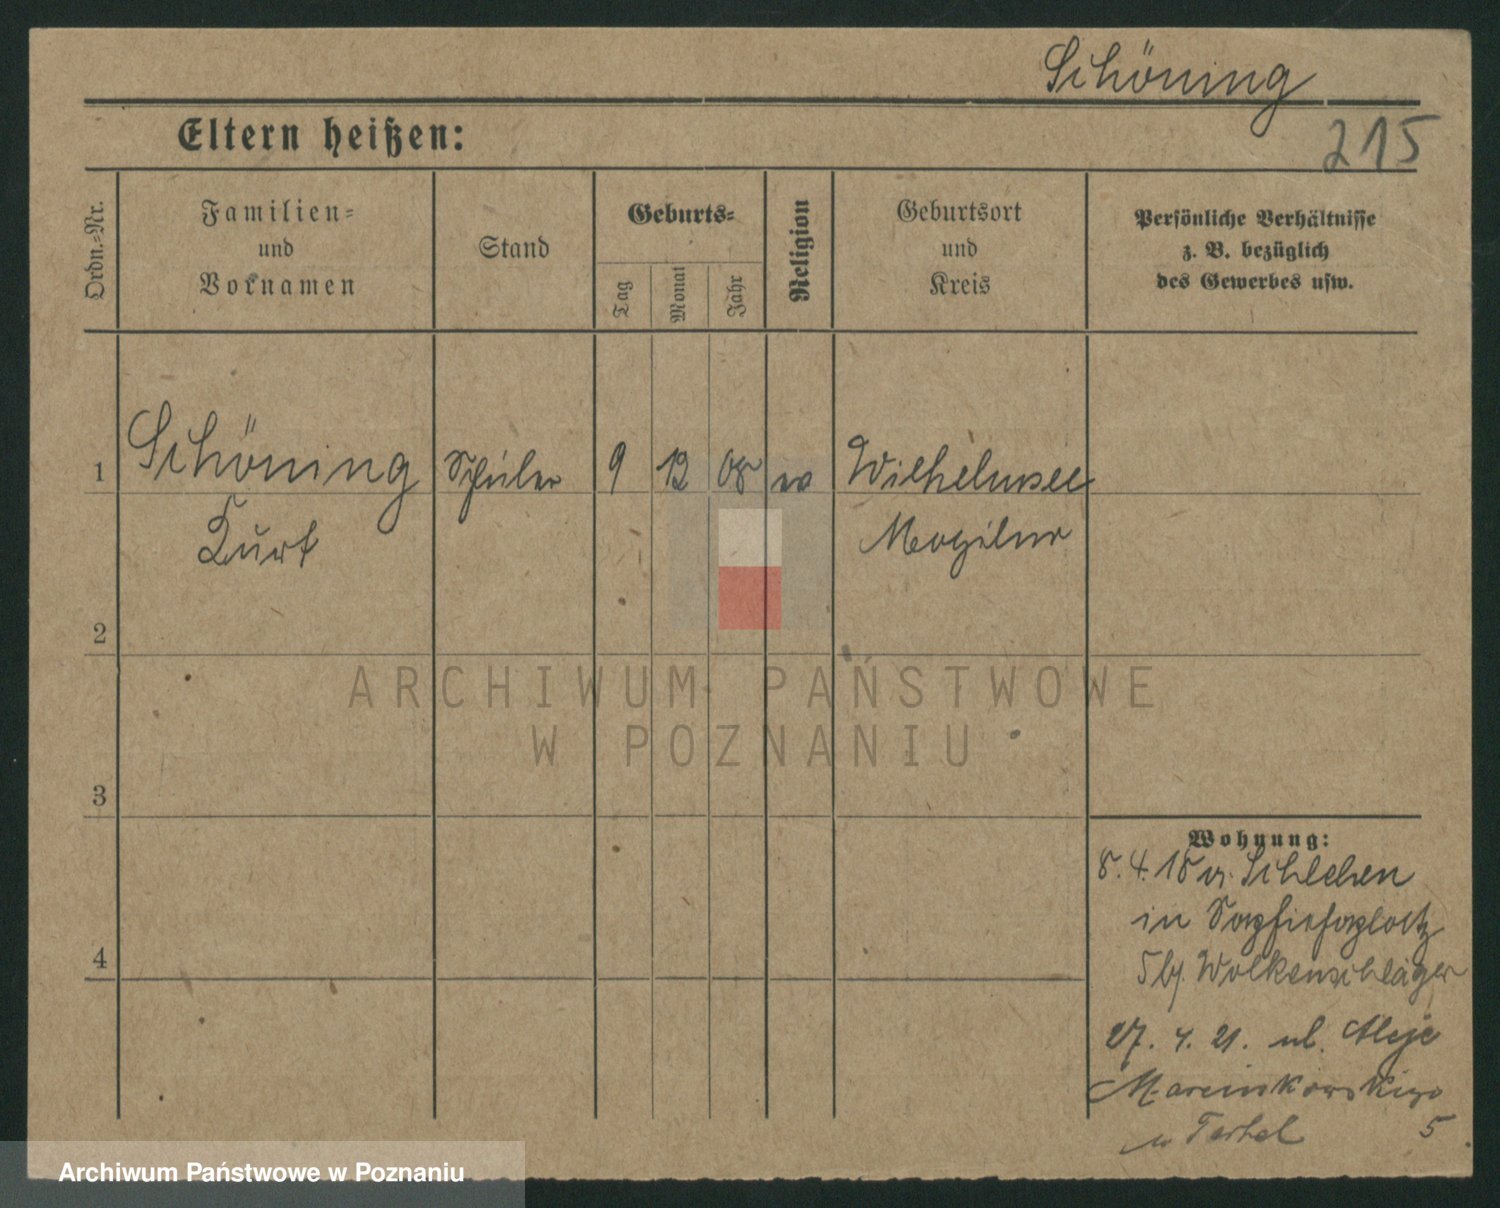 Schöning
215
Eltern heißen:
Ordn.=Nr.
Familien=
und
Vornamen
Stand
Geburts=
Tag
Monat
Jahr
Religion
Geburtsort
und
Kreis
Persönliche Verhältnisse
z. B. bezüglich
des Gewerbes usw.
1
Schöning
Schüler
9
12
08
Wilhelmsee
Kurt
Mogilno
2
ARCHIWUM PAŃSTWOWE
W POZNANIU
3
Wohnung:
8. 4. 18 v. Schlehen
in Sapiehaplatz
5 bj. Wolkenschläger
4
27. 4. 21. ul. Aleje
Marcinkowskiego
u Tertel 5
Archiwum Państwowe w Poznaniu